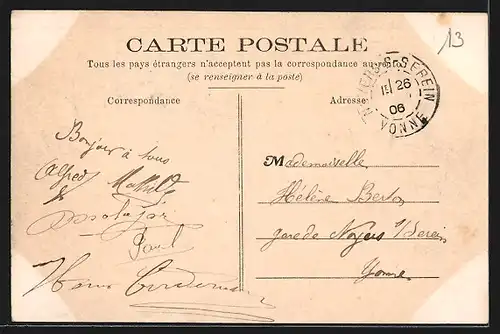 CARTE POSTALE
Tous les pays étrangers n'acceptent pas la correspondance au
(se renseigner à la poste)
Correspondance
Adresse
13
S-SEREIN
26
06
YONNE
Bonjour à tous
Alfred Mathilde
Paul
Mademoiselle
Hélène Berton
gare de Noyers s/Serein
Yonne